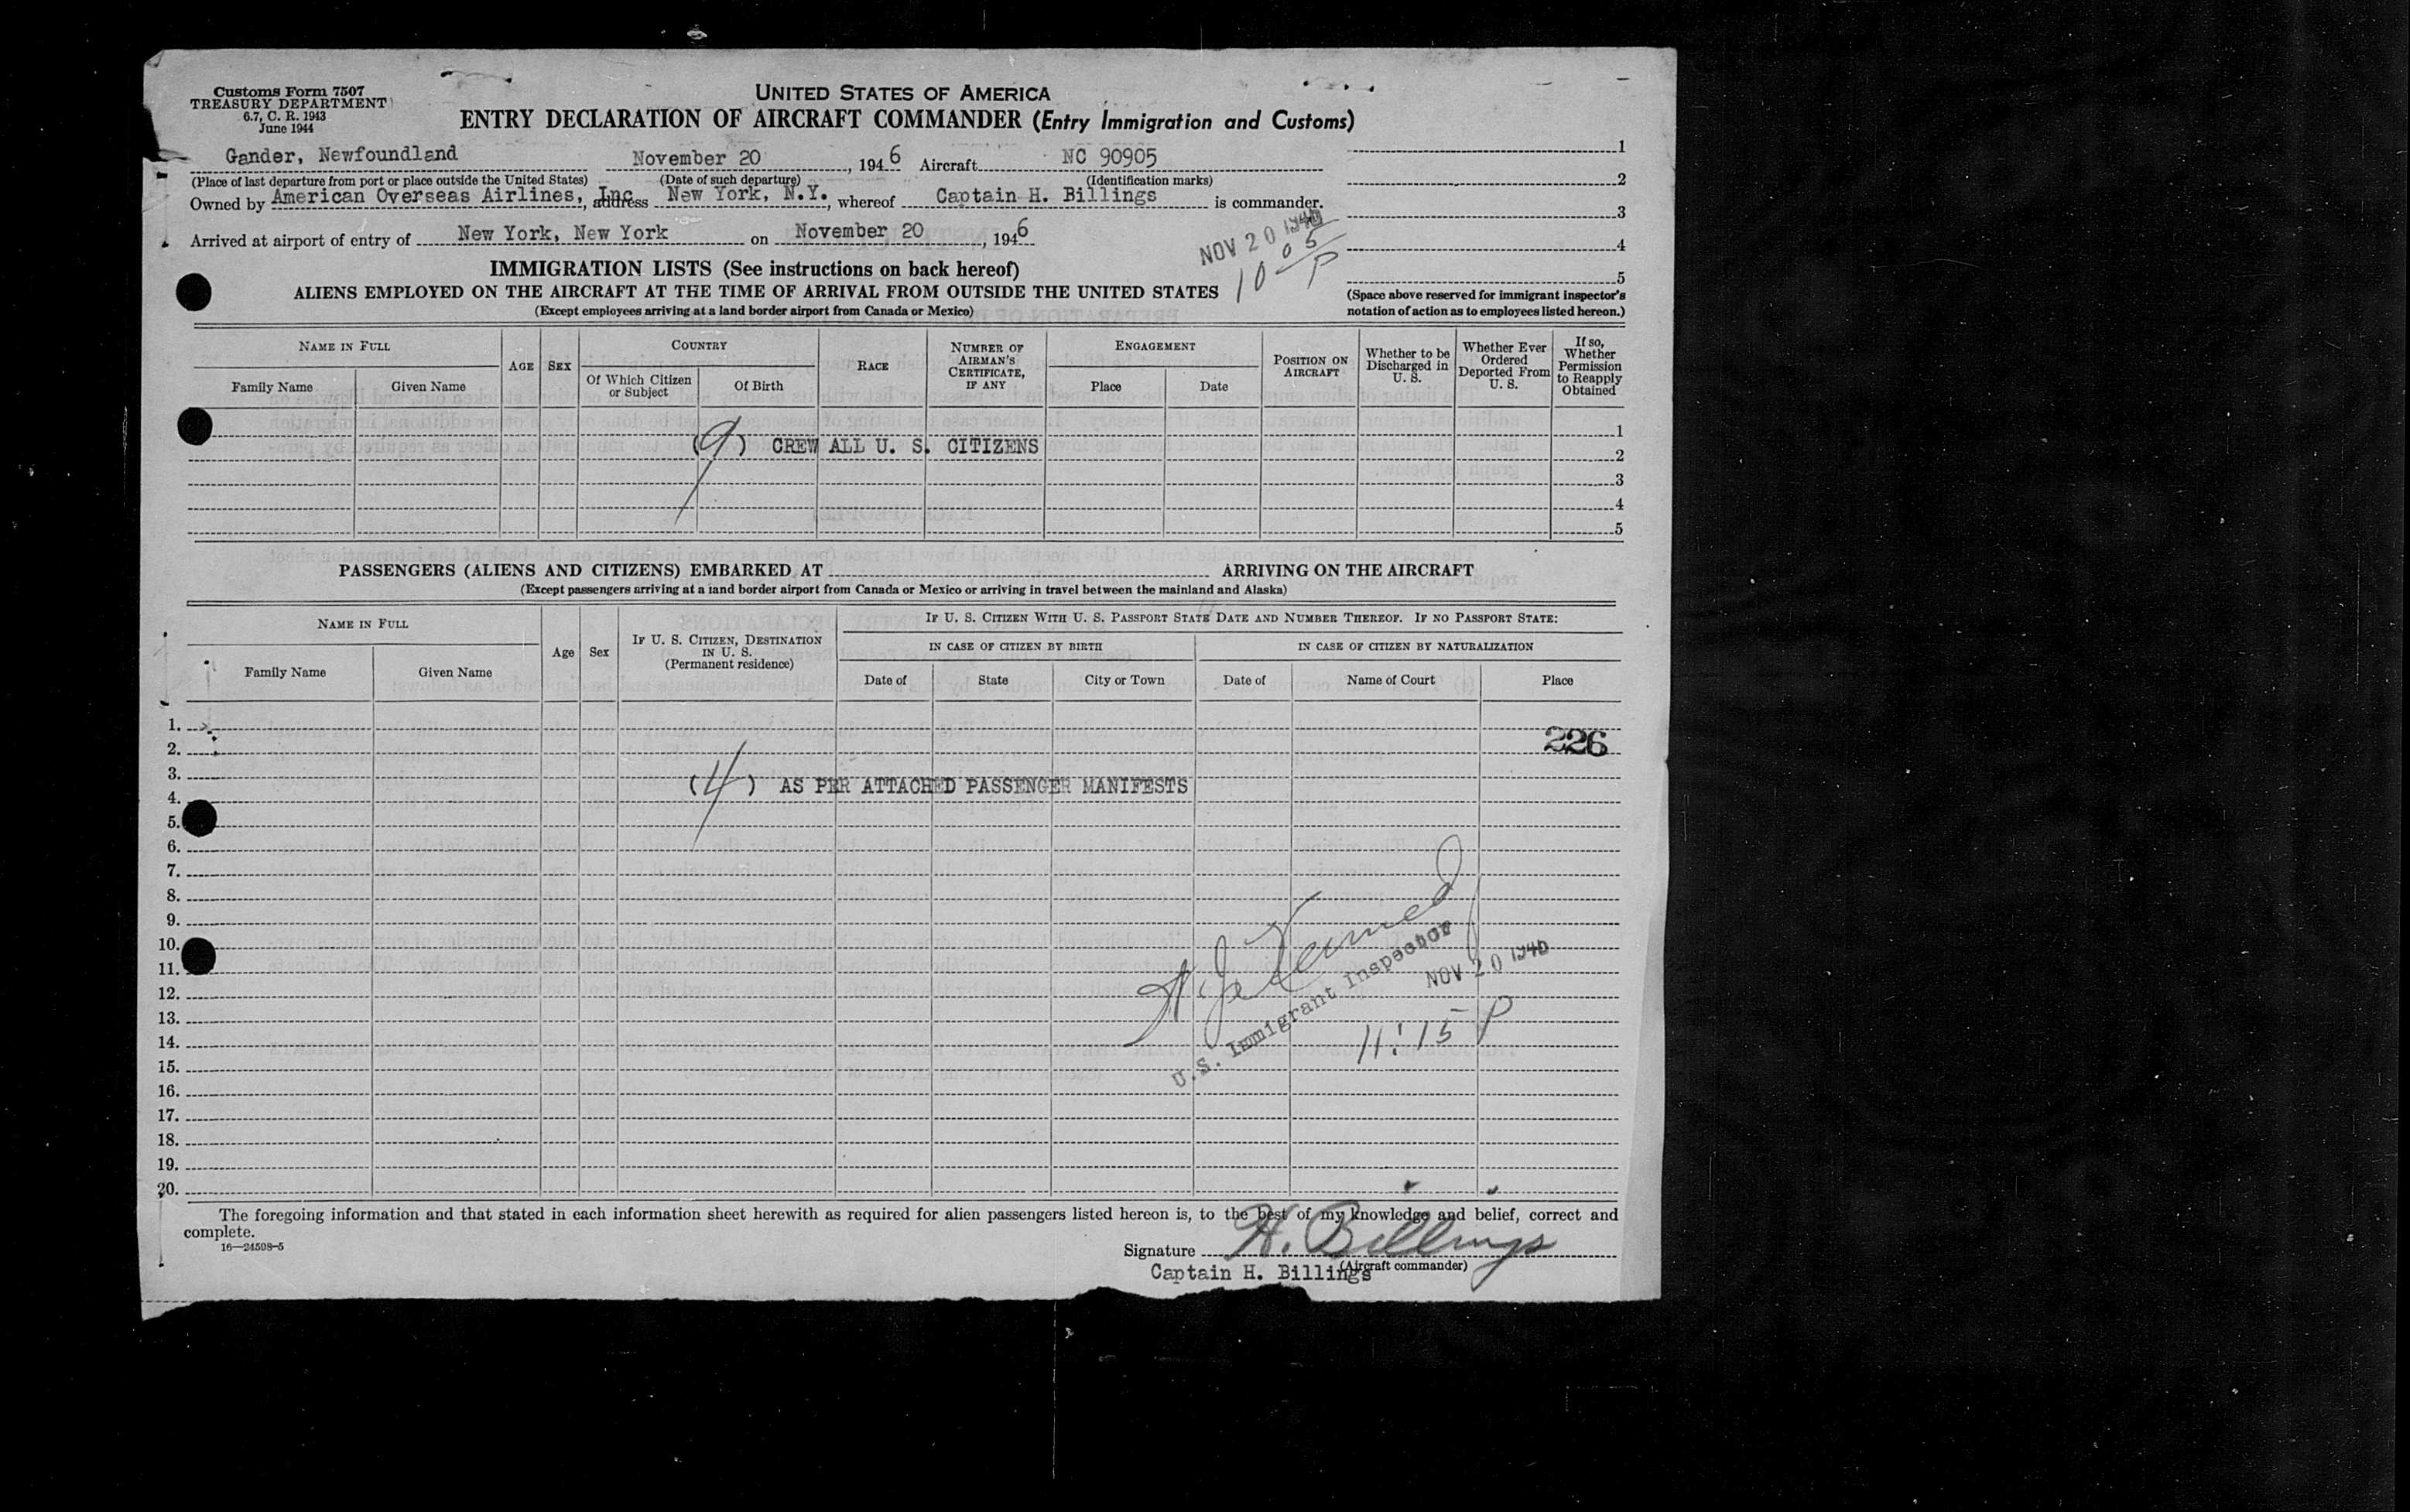 Customs Form 7507
TREASURY DEPARTMENT
6.7, C. R. 1943
June 1944
UNITED STATES OF AMERICA
ENTRY DECLARATION OF AIRCRAFT COMMANDER (Entry Immigration and Customs)
Gander, Newfoundland November 20, 1946 Aircraft NC 90905
(Place of last departure from port or place outside the United States) (Date of such departure) (Identification marks)
Owned by American Overseas Airlines, Inc address New York, N.Y., whereof Captain H. Billings is commander.
Arrived at airport of entry of New York, New York on November 20, 1946
NOV 20 1946
10 05 P
1
2
3
4
5
(Space above reserved for immigrant inspector's
notation of action as to employees listed hereon.)
IMMIGRATION LISTS (See instructions on back hereof)
ALIENS EMPLOYED ON THE AIRCRAFT AT THE TIME OF ARRIVAL FROM OUTSIDE THE UNITED STATES
(Except employees arriving at a land border airport from Canada or Mexico)
NAME IN FULL
Family Name Given Name
AGE
SEX
COUNTRY
Of Which Citizen or Subject
Of Birth
RACE
NUMBER OF AIRMAN'S CERTIFICATE, IF ANY
ENGAGEMENT
Place Date
POSITION ON AIRCRAFT
Whether to be Discharged in U. S.
Whether Ever Ordered Deported From U. S.
If so, Whether Permission to Reapply Obtained
1
(9) CREW ALL U. S. CITIZENS
2
3
4
5
PASSENGERS (ALIENS AND CITIZENS) EMBARKED AT ARRIVING ON THE AIRCRAFT
(Except passengers arriving at a land border airport from Canada or Mexico or arriving in travel between the mainland and Alaska)
NAME IN FULL
Family Name Given Name
Age
Sex
IF U. S. CITIZEN, DESTINATION IN U. S.
(Permanent residence)
IF U. S. CITIZEN WITH U. S. PASSPORT STATE DATE AND NUMBER THEREOF. IF NO PASSPORT STATE:
IN CASE OF CITIZEN BY BIRTH
Date of State City or Town
IN CASE OF CITIZEN BY NATURALIZATION
Date of Name of Court Place
1.
2. 226
3.
(4) AS PER ATTACHED PASSENGER MANIFESTS
4.
5.
6.
7.
8.
9.
10.
11.
12.
13.
14.
15.
16.
17.
18.
19.
20.
U.S. Immigrant Inspector
NOV 20 1946
11:15 P
The foregoing information and that stated in each information sheet herewith as required for alien passengers listed hereon is, to the best of my knowledge and belief, correct and
complete.
16—24508-5
Signature H. Billings
(Aircraft commander)
Captain H. Billings